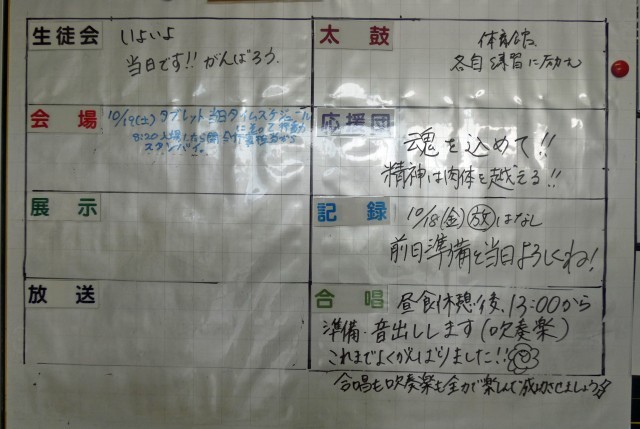 生徒会
いよいよ
当日です!! がんばろう.
会場
10/19(土) タブレット 当日タイムスケジュール
8:20 入場したら
スタンバイ。
展示
放送
太鼓
体育館.
各自練習に励む
応援団
魂を込めて!!
精神は肉体を越える!!
記録
10/18(金) 放 はなし
前日準備と当日よろしくね!
合唱
昼食休憩後、13:00から
準備・音出しします(吹奏楽)
これまでよくがんばりました!!
合唱も吹奏楽も全力で楽しんで成功させましょう